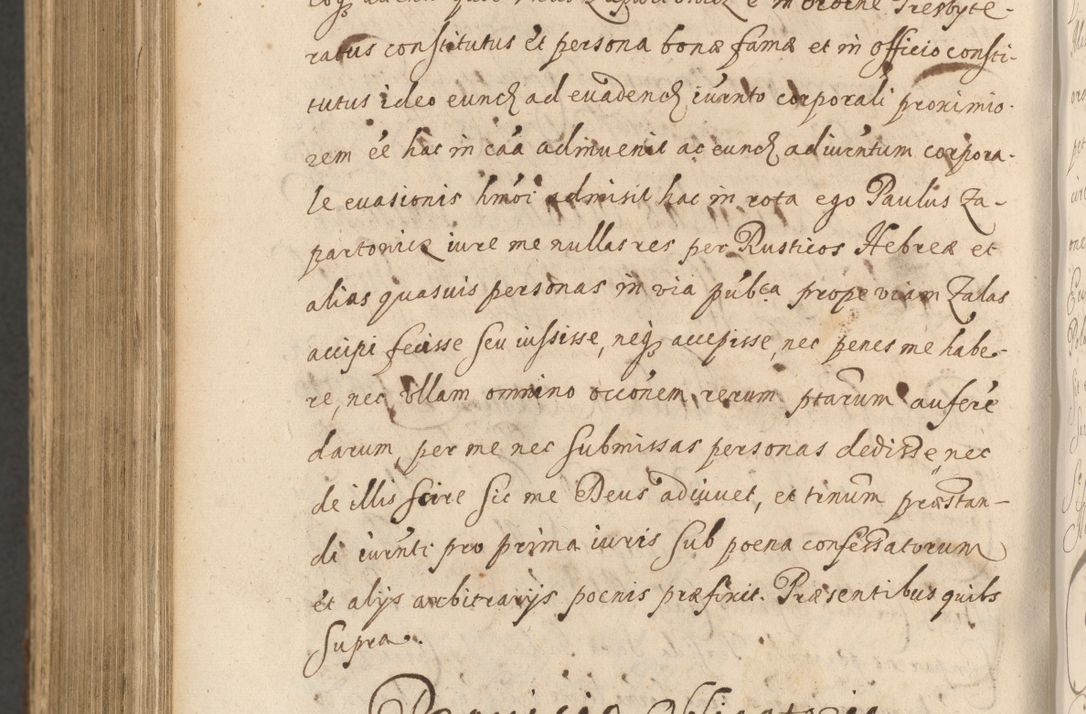 ratus constitutus et persona bonæ famæ et in officio consti-
tutus ideo eunđ ad evadenđ iurnto corporali proximio-
rem eē hac in cāa adinvenit ac eunđ ad iurntum corpora-
le evasionis hmōi admisit hac in rota ego Paulus Za-
partowicz iure me nullas res per Rusticos Hebreæ et
alias quasvis personas in via pub̄ca prope viam Zalas
accipi fecisse seu iussisse, neq3 accepisse, nec penes me habe-
re, nec ullam omnino occōnem rerum ptarum auferē
darum, per me nec submissas personas dedisse, nec
de illis scire sic me Deus adiuvet, et trnum præstan-
di iurnti pro prima iuris sub poena confessatorum
et alÿs arbitrarÿs poenis præfixit. Præsentibus quibs
supra.
Obligatoria